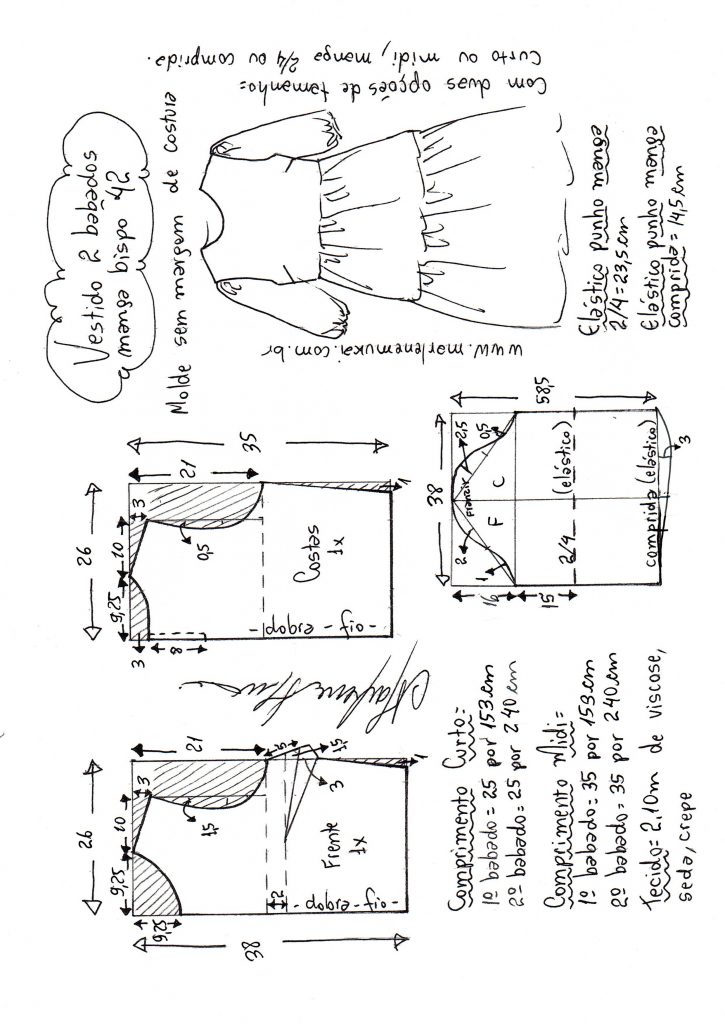 Vestido 2 babados
manga bispo 42
Molde sem margem de costura
Com duas opções de tamanho=
Curto ou midi, manga 2/4 ou comprida.
www.marlenemukai.com.br
Elástico punho manga
2/4=23,5cm
Elástico punho manga
comprida=14,5cm
26
9,25
10
3
21
1,5
9,25
38
5
1,5
3
2
Frente
1x
- dobra - fio -
1
26
9,25
10
3
21
35
0,5
3
8
Costas
1x
- dobra - fio -
1
38
58,5
16
15
2
1
2,5
0,5
Franzir
F
C
2/4 (elástico)
comprida (elástico)
3
Comprimento Curto=
1º babado=25 por 153cm
2º babado=25 por 240cm
Comprimento Midi=
1º babado=35 por 153cm
2º babado=35 por 240cm
Tecido=2,10m de viscose,
seda, crepe